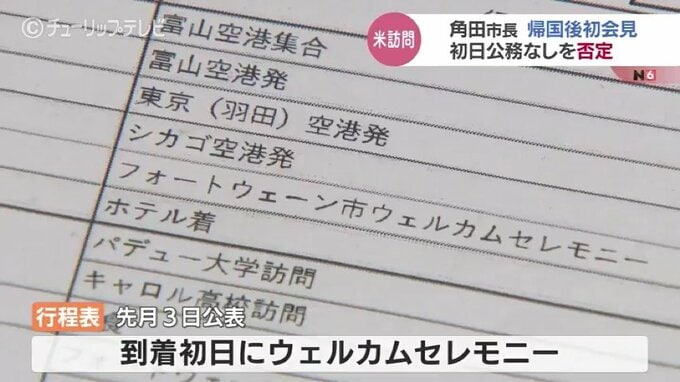 ©チューリップテレビ
米訪問
角田市長 帰国後初会見
初日公務なしを否定
N6
富山空港集合
富山空港発
東京(羽田)空港発
シカゴ空港発
フォートウェーン市ウェルカムセレモニー
ホテル着
パデュー大学訪問
キャロル高校訪問
行程表 先月3日公表
到着初日にウェルカムセレモニー